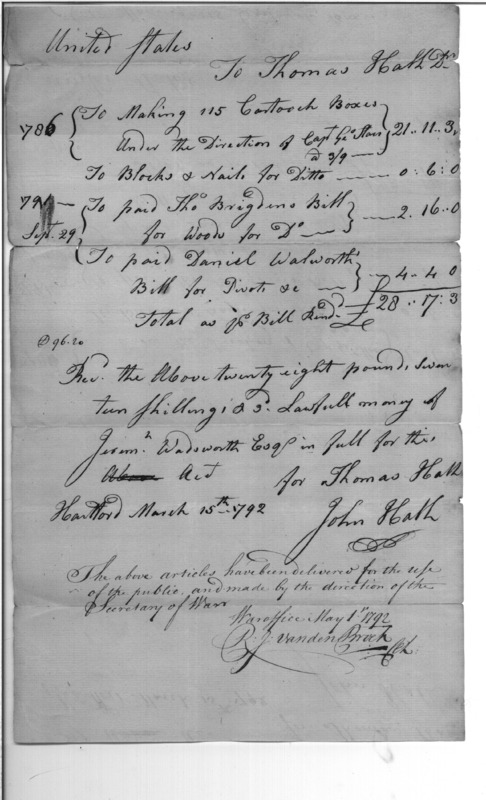 United States
To Thomas Hath Dr
1786 To Making 115 Cartooch Boxes
Under the Direction of Capt Geo Starr 21..11..3
a 3/9
To Blocks & Nails for Ditto 0:6:0
Sept. 29 To paid Tho Brigdens Bill 2.16..0
for Woods for Do
To paid Daniel Walworth's 4..4 0
Bill for Pivots &c
Total as pr Bill Rend £28..17:3
D 96.20
Recv. the Above twenty eight pounds, seven
teen shillings & 3d. Lawfull money of
Jerem.h Wadsworth Esqr in full for this
Act for Thomas Hath
Hartford March 15th 1792 John Hath
The above articles have been delivered for the use
of the public, and made by the direction of the
Secretary of Warr
War office May 1st 1792
P. J. Vanden Broek
Clk.